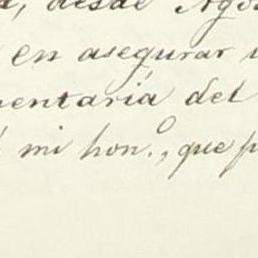 desde Ago
en asegurar
mentaria del
mi hon.º, que p